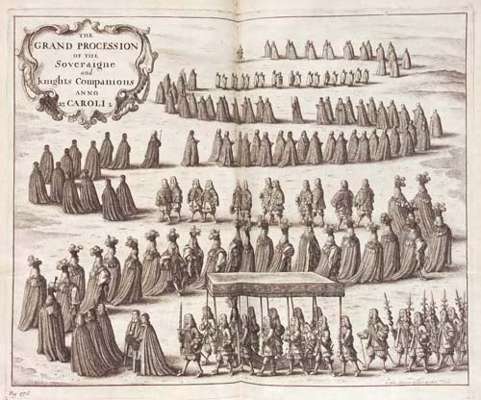 THE
GRAND PROCESSION
OF THE
Soveraigne
and
Knights Companions
ANNO
CAROLI 2